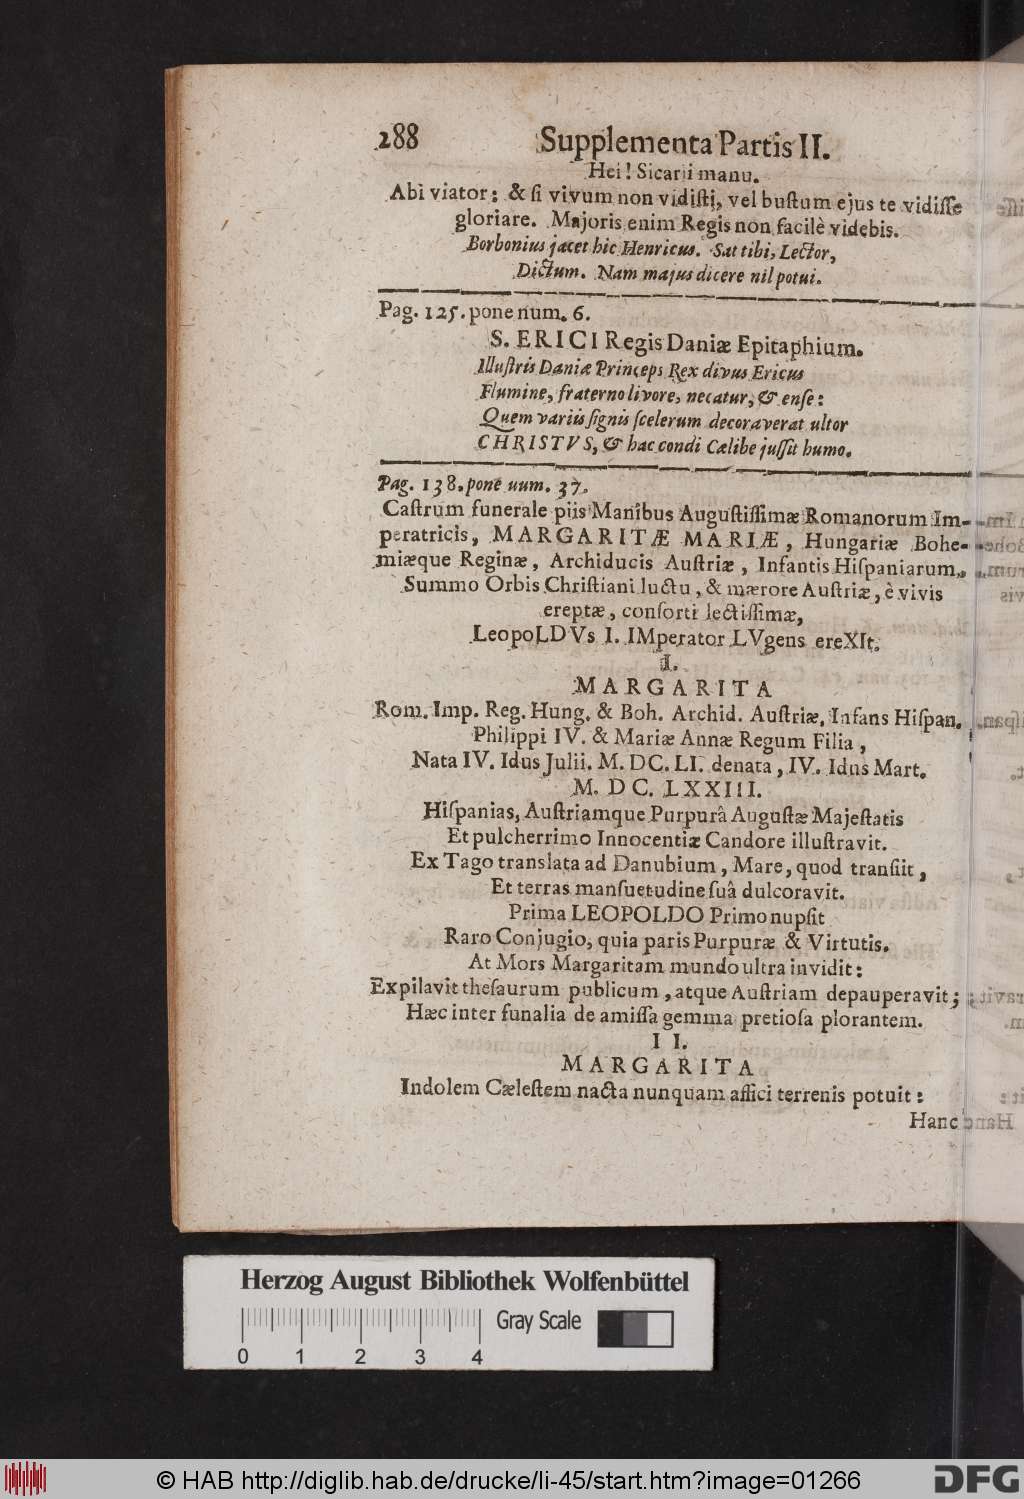 288 Supplementa Partis II.
Hei! Sicarii manu.
Abi viator: & ſi vivum non vidiſti, vel buſtum ejus te vidiſſe
gloriare. Majoris enim Regis non facilè videbis.
Borbonius jacet hic Henricus. Sat tibi, Lector,
Dictum. Nam majus dicere nil potui.
Pag. 125. pone num. 6.
S. ERICI Regis Daniæ Epitaphium.
Illuſtris Daniæ Princeps Rex divus Ericus
Flumine, fraterno livore, necatur, & enſe:
Quem variis ſignis ſcelerum decoraverat ultor
CHRISTVS, & hac condi Cælibe juſſit humo.
Pag. 138. pone uum. 37.
Caſtrum funerale piis Manibus Auguſtiſſimæ Romanorum Im-
peratricis, MARGARITÆ MARIÆ, Hungariæ Bohe-
miæque Reginæ, Archiducis Auſtriæ, Infantis Hiſpaniarum,
Summo Orbis Chriſtiani luctu, & mærore Auſtriæ, è vivis
ereptæ, conſorti lectiſſimæ,
LeopoLDVs I. IMperator LVgens ereXIt.
I.
MARGARITA
Rom. Imp. Reg. Hung. & Boh. Archid. Auſtriæ, Infans Hiſpan.
Philippi IV. & Mariæ Annæ Regum Filia,
Nata IV. Idus Julii. M. DC. LI. denata, IV. Idus Mart.
M. DC. LXXIII.
Hiſpanias, Auſtriamque Purpurâ Auguſtæ Majeſtatis
Et pulcherrimo Innocentiæ Candore illuſtravit.
Ex Tago translata ad Danubium, Mare, quod tranſiit,
Et terras manſuetudine ſuâ dulcoravit.
Prima LEOPOLDO Primo nupſit
Raro Conjugio, quia paris Purpuræ & Virtutis.
At Mors Margaritam mundo ultra invidit:
Expilavit theſaurum publicum, atque Auſtriam depauperavit;
Hæc inter funalia de amiſſa gemma pretioſa plorantem.
II.
MARGARITA
Indolem Cæleſtem nacta nunquam affici terrenis potuit:
Hanc
Herzog August Bibliothek Wolfenbüttel
Gray Scale
0 1 2 3 4
© HAB http://diglib.hab.de/drucke/li-45/start.htm?image=01266
DFG